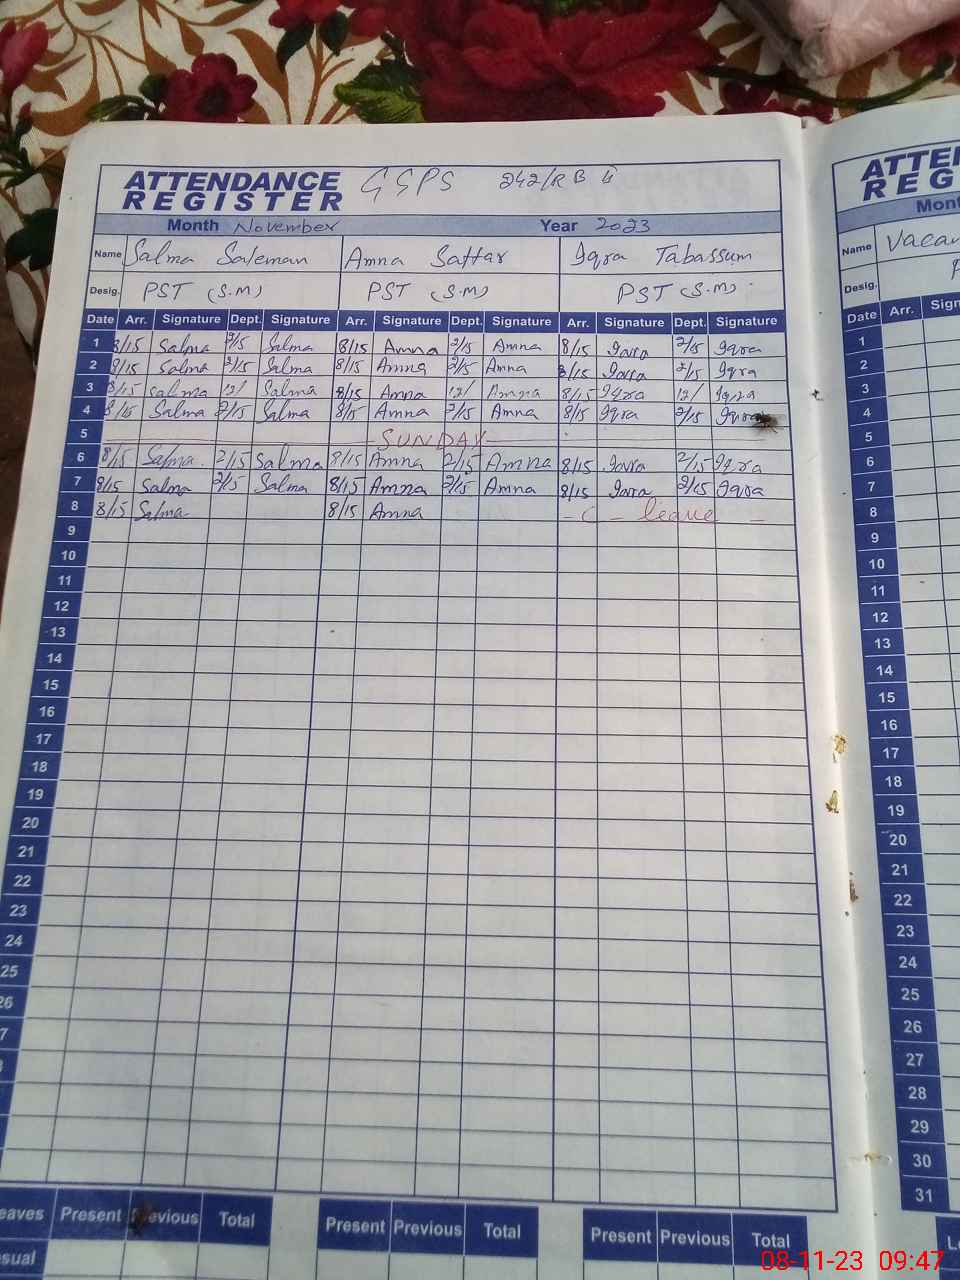 ATTENDANCE REGISTER GGPS 242/RB
Month November Year 2023
Name Salma Saleman Amna Sattar Iqra Tabassum
Desig. PST (S.M) PST (S.M) PST (S.M)
Date Arr. Signature Dept. Signature Arr. Signature Dept. Signature Arr. Signature Dept. Signature
1 8/15 Salma 2/15 Salma 8/15 Amna 2/15 Amna 8/15 Iqra 2/15 Iqra
2 8/15 Salma 2/15 Salma 8/15 Amna 2/15 Amna 8/15 Iqra 2/15 Iqra
3 8/15 Salma 12/ Salma 8/15 Amna 12/ Amna 8/15 Iqra 12/ Iqra
4 8/15 Salma 2/15 Salma 8/15 Amna 2/15 Amna 8/15 Iqra 2/15 Iqra
5 SUNDAY
6 8/15 Salma 2/15 Salma 8/15 Amna 2/15 Amna 8/15 Iqra 2/15 Iqra
7 8/15 Salma 2/15 Salma 8/15 Amna 2/15 Amna 8/15 Iqra 2/15 Iqra
8 8/15 Salma 8/15 Amna - C - leave -
9
10
11
12
13
14
15
16
17
18
19
20
21
22
23
24
25
26
7
Present Previous Total Present Previous Total Present Previous Total
Month
Name Vacan
Desig.
Date Arr.
1
2
3
4
5
6
7
8
9
10
11
12
13
14
15
16
17
18
19
20
21
22
23
24
25
26
27
28
29
30
31
08-11-23 09:47